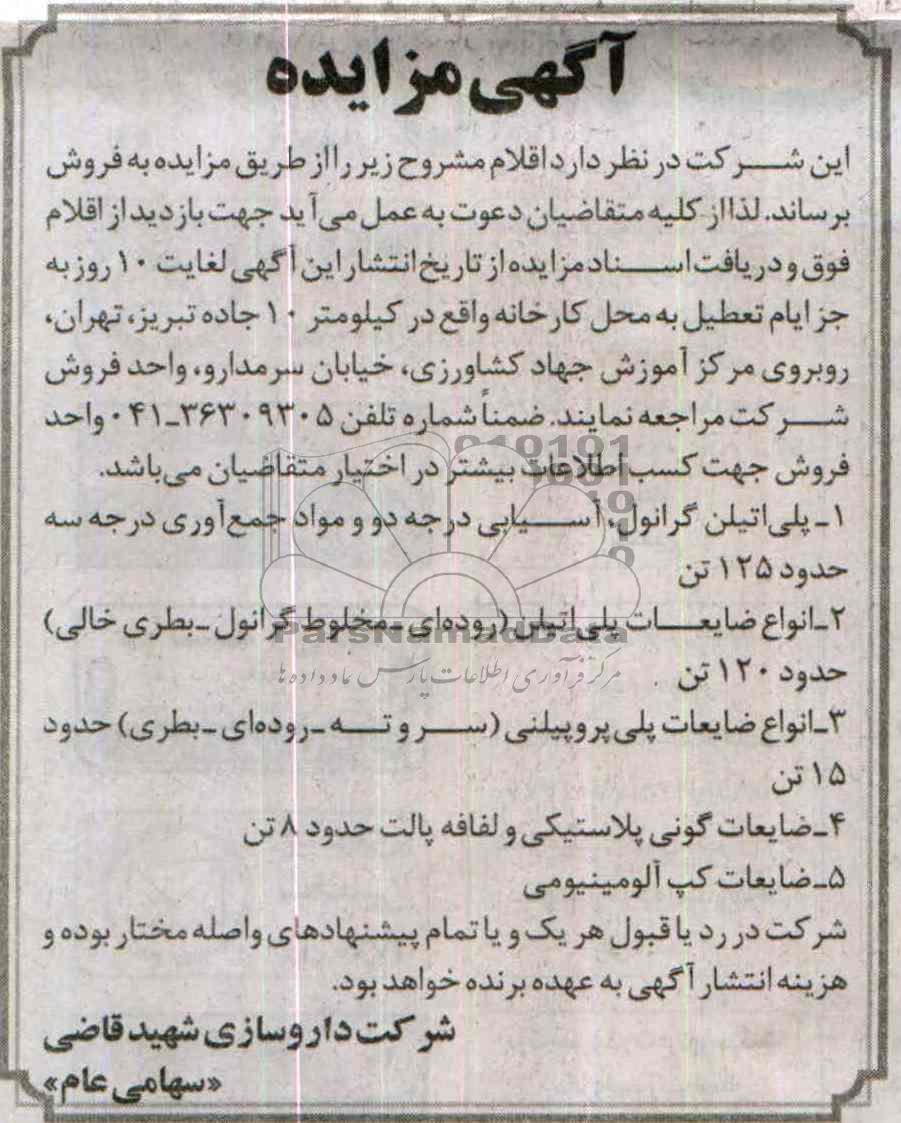 آگهی مزایده
این شرکت در نظر دارد اقلام مشروح زیر را از طریق مزایده به فروش
برساند. لذا از کلیه متقاضیان دعوت به عمل می‌آید جهت بازدید از اقلام
فوق و دریافت اسناد مزایده از تاریخ انتشار این آگهی لغایت ۱۰ روز به
جز ایام تعطیل به محل کارخانه واقع در کیلومتر ۱۰ جاده تبریز، تهران،
روبروی مرکز آموزش جهاد کشاورزی، خیابان سرمدارو، واحد فروش
شرکت مراجعه نمایند. ضمناً شماره تلفن ۳۶۳۰۹۳۰۵-۰۴۱ واحد
فروش جهت کسب اطلاعات بیشتر در اختیار متقاضیان می‌باشد.
۱- پلی‌اتیلن گرانول، آسیابی درجه دو و مواد جمع‌آوری درجه سه
حدود ۱۲۵ تن
۲-انواع ضایعات پلی‌اتیلن (روده‌ای -مخلوط گرانول -بطری خالی)
حدود ۱۲۰ تن
ParsNamadData
مرکز فرآوری اطلاعات پارس نماد داده ها
۳-انواع ضایعات پلی پروپیلنی (سر و ته -روده‌ای -بطری) حدود
۱۵ تن
۴-ضایعات گونی پلاستیکی و لفافه پالت حدود ۸ تن
۵-ضایعات کپ آلومینیومی
شرکت در رد یا قبول هر یک و یا تمام پیشنهادهای واصله مختار بوده و
هزینه انتشار آگهی به عهده برنده خواهد بود.
شرکت داروسازی شهید قاضی
«سهامی عام»